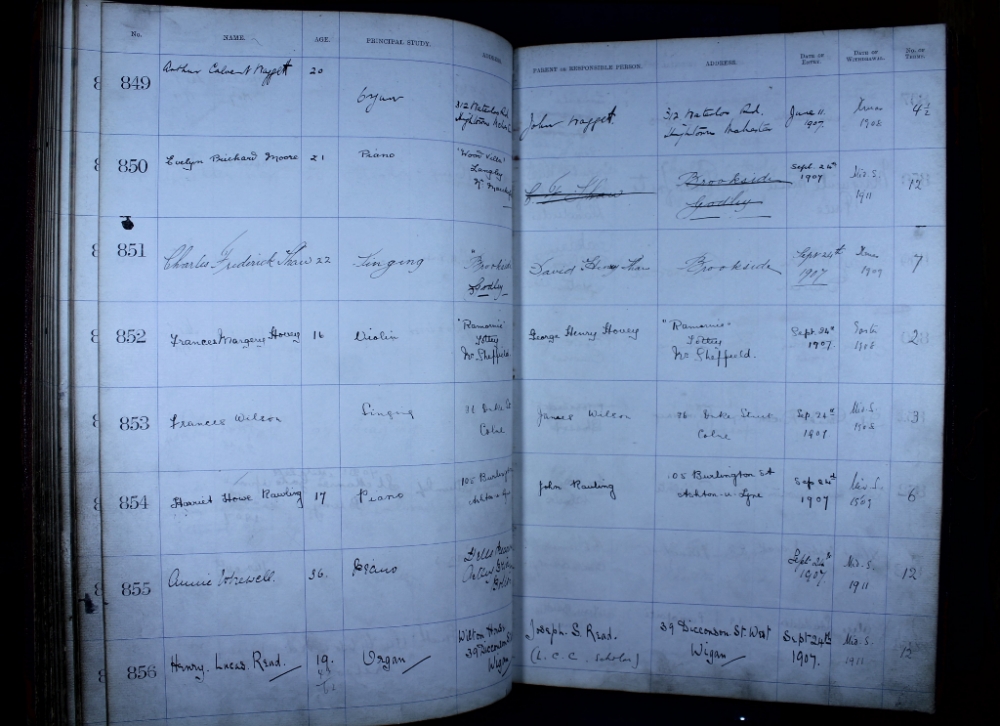 No. NAME. AGE. PRINCIPAL STUDY. ADDRESS. PARENT OR RESPONSIBLE PERSON. ADDRESS. DATE OF ENTRY. DATE OF WITHDRAWAL. No. OF TERMS.
849 Arthur Calvert Nagget 20
Organ
312 Waterloo Rd. John Nagget 312 Waterloo Rd. June 11 Xmas 4½
Hightown Hightown Manchester 1907. 1908
850 Evelyn Prichard Moore 21 Piano 'Wood Villa' Sept. 24th Mid. S. 12
Langley 1907 1911
Brookside
Godley
851 Charles Frederick Shaw 22 Singing "Brookside David Shaw Brookside Sept 24th Xmas 7
Godley 1907 1909
852 Frances Margery Hovey 16 Violin "Ramornie" George Henry Hovey "Ramornie" Sept. 24th 2
Totley Totley 1907. 1908
Nr. Sheffield Nr. Sheffield.
853 Frances Wilson Singing Duke St James Wilson Duke Street Sep. 24th Mid. S. 3
Colne Colne 1907 1908
854 Harriet Howe Rawling 17 Piano 105 Burlington John Rawling 105 Burlington St Sep 24th Mid. S. 6
Ashton-u-Lyne 1907 1909
855 Annie Whewell. 36. Piano Sept. 24th Mid. S. 12
1907. 1911
856 Henry. Lucas. Read. 19. Organ Wilton House Joseph. S. Read. 39 Dicconson St. West Sept 24th Mid. S. 12
39 Dicconson St. (L. C. C. Scholar) Wigan 1907. 1911
Wigan